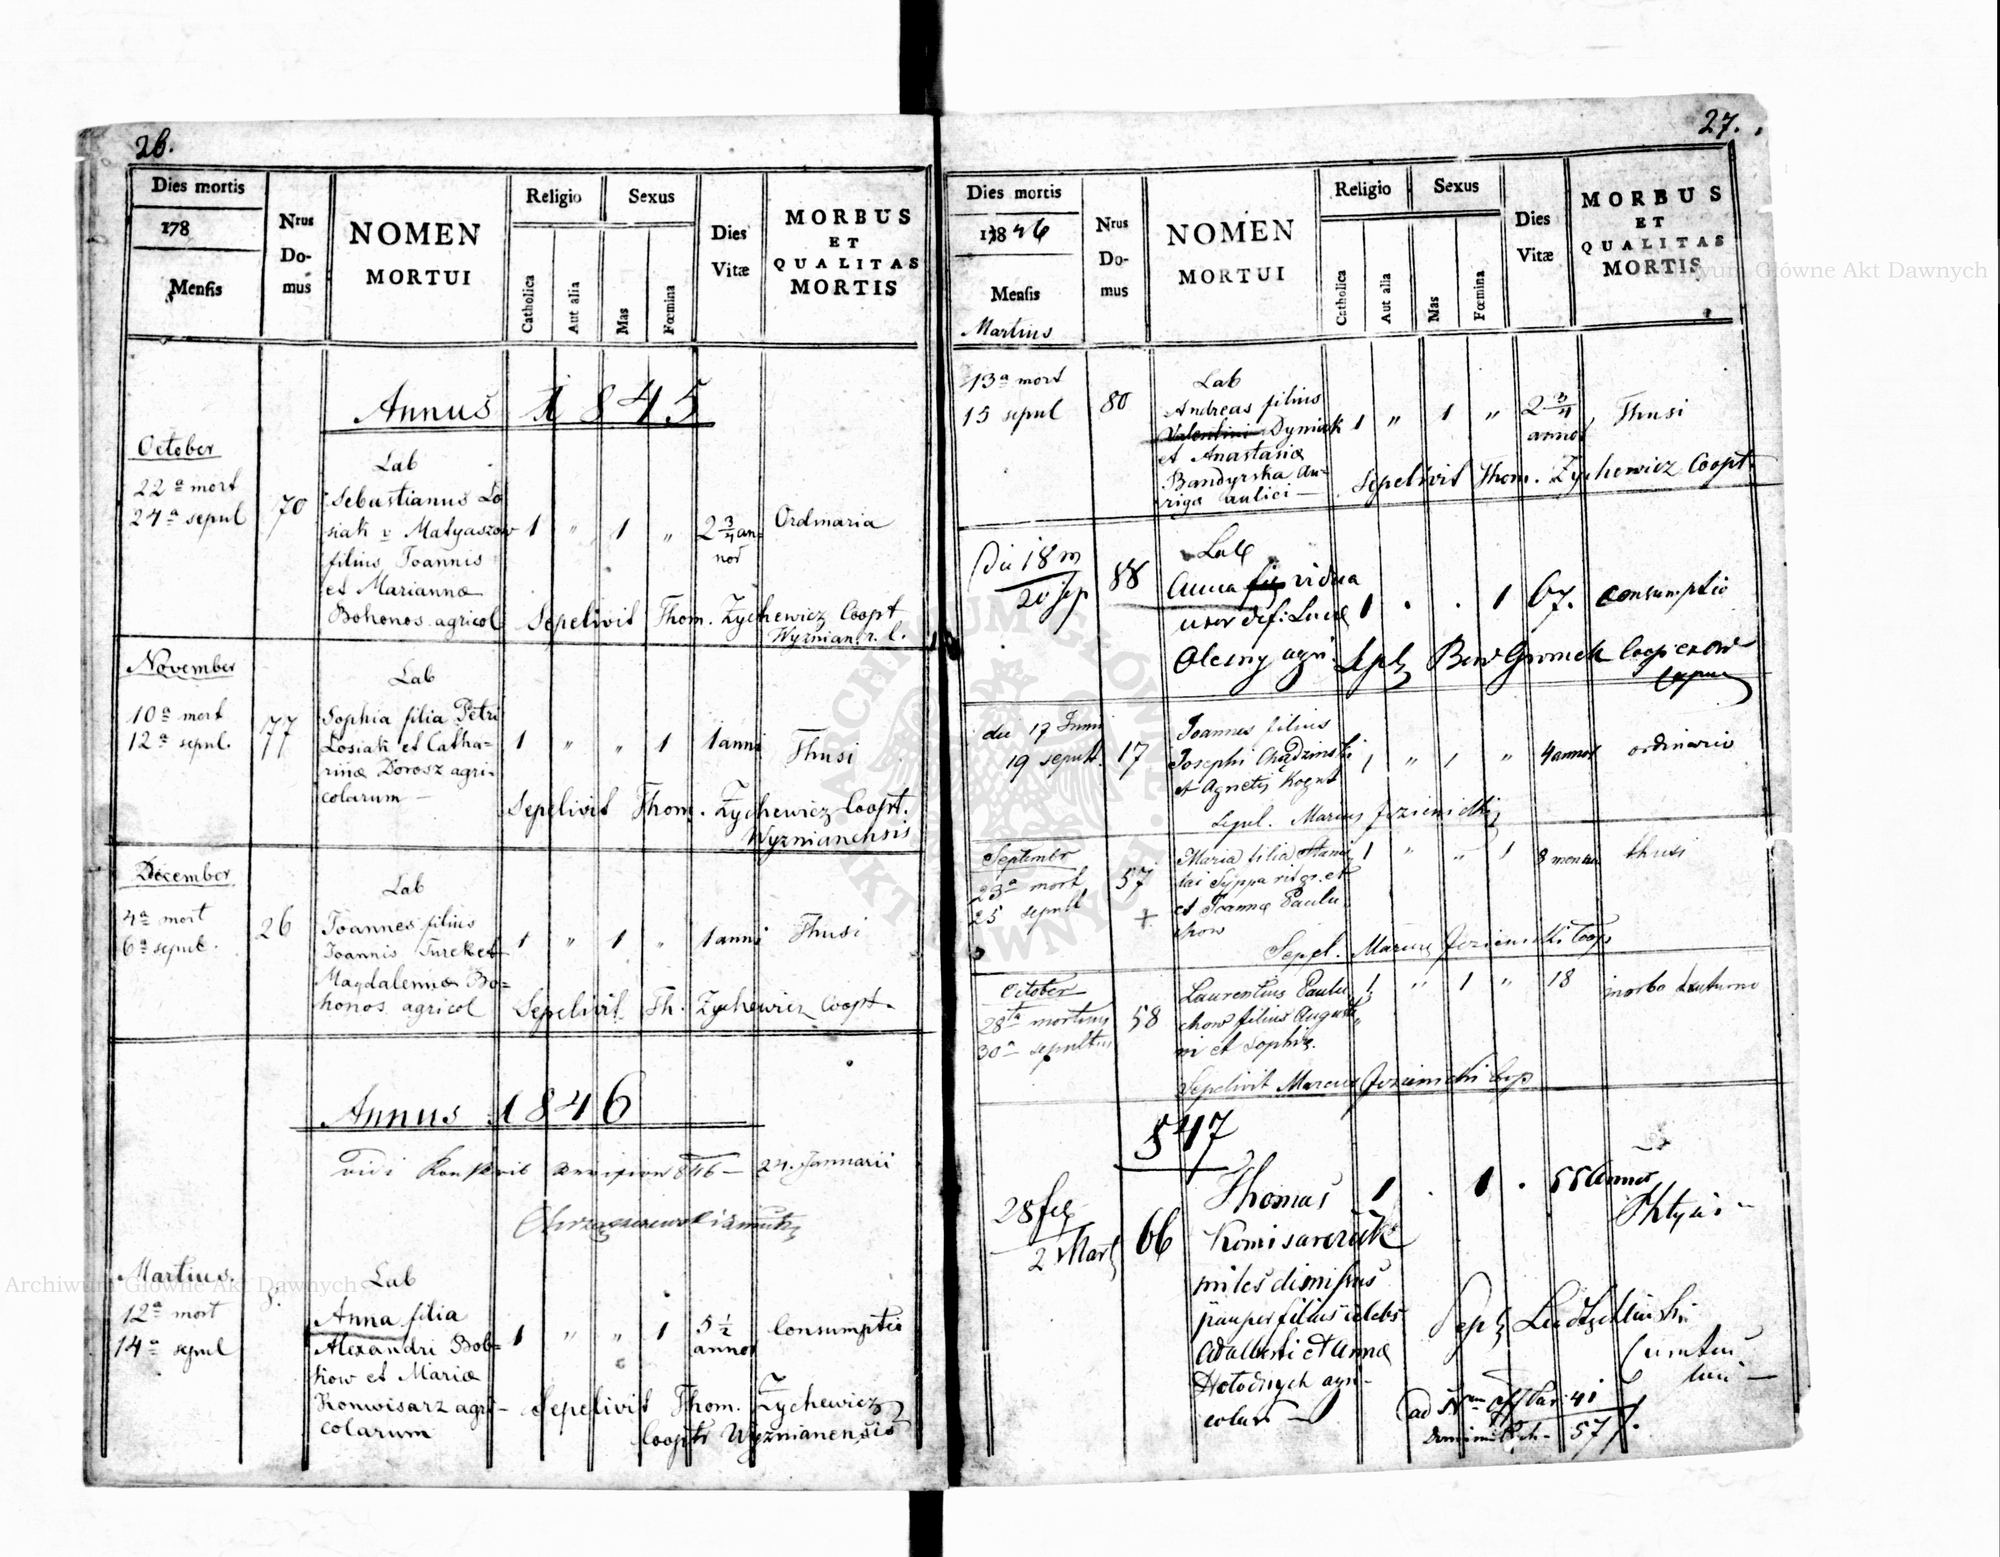 26.
Dies mortis
178
Mensis
Nrus
Do-
mus
NOMEN
MORTUI
Religio
Catholica
Aut alia
Sexus
Mas
Fœmina
Dies
Vitæ
MORBUS
ET
QUALITAS
MORTIS
Annus 1845
October
22ª mort
24ª sepul
70
Lab
Sebastianus Lo
siak v Matyaszow
filius Joannis
et Mariannæ
Bohonos agricol
1 " 1 "
2 3/4 an-
nor
Ordinaria
Sepelivit Thom. Zychewicz Coopt
Wyznian. r. l.
November
10ª mort
12ª sepul.
77
Lab
Sophia filia Petri
Losiak et Catha-
rinæ Dorosz agri-
colarum
1 " " 1
1 anni
Thusi
Sepelivit Thom. Zychewicz Coopt.
Wyznianensis
December
4ª mort
6ª sepul.
26
Lab
Joannes filius
Joannis Turek et
Magdalennæ Bo-
honos agricol
1 " 1 "
1 anni
Thusi
Sepelivit Th. Zychewicz Coopt.
Annus 1846
vidi 846 24. Januarii
Martius.
12ª mort
14ª sepul
8.
Lab
Anna filia
Alexandri Bob-
kow et Mariæ
Komwisarz agri-
colarum
1 " " 1
5 1/2
annor
Consumptio
Sepelivit Thom. Zychewicz
Coopt Wyznianensis
27.
Dies mortis
1846
Mensis
Martius
Nrus
Do-
mus
NOMEN
MORTUI
Religio
Catholica
Aut alia
Sexus
Mas
Fœmina
Dies
Vitæ
MORBUS
ET
QUALITAS
MORTIS
13ª mort
15 sepul
80
Lab
Andreas filius
Valentini Dyniak
et Anastasiæ
Bandyrska au-
riga aulici
1 " 1 "
2 3/4
annor
Thusi
Sepelivit Thom. Zychewicz Coopt.
Die 18 m
20 sep
88
Lab
Anna vidua
uxor def: Lucæ
Olesny agri
1 . . 1
67.
consumptio
Gromek Coop
die 17 Junii
19 sepult.
17
Joannes filius
Josephi Chądzinski
et Agnetis Kogut
1 " 1 "
4 annor
ordinario
Sepel. Marcus
Septembr
23ª mort
25 sepult
57
+
Maria filia Stanis
lai Syppa
et Joannæ Paulu
chow
1 " " 1
8 mensiu
thusi
Sepel. Marcus Coop
October
28ta mortuus
30ª sepultus
58
Laurentius Paulu
chow filius Augusti
ni et Sophiæ.
1 " 1 "
18
morbo
Sepelivit Marcus Coop
847
28 feb
2 Mart
66
Thomas
Komisarczuk
miles dimissus
pauper filius celebs
Adalberti et Annæ
Hołodnych agri-
colar
1 . 1 .
55 annor
Phtysis
ad
41
57
Archiwum Główne Akt Dawnych
Archiwum Główne Akt Dawnych
ARCHIWUM GŁÓWNE AKT DAWNYCH